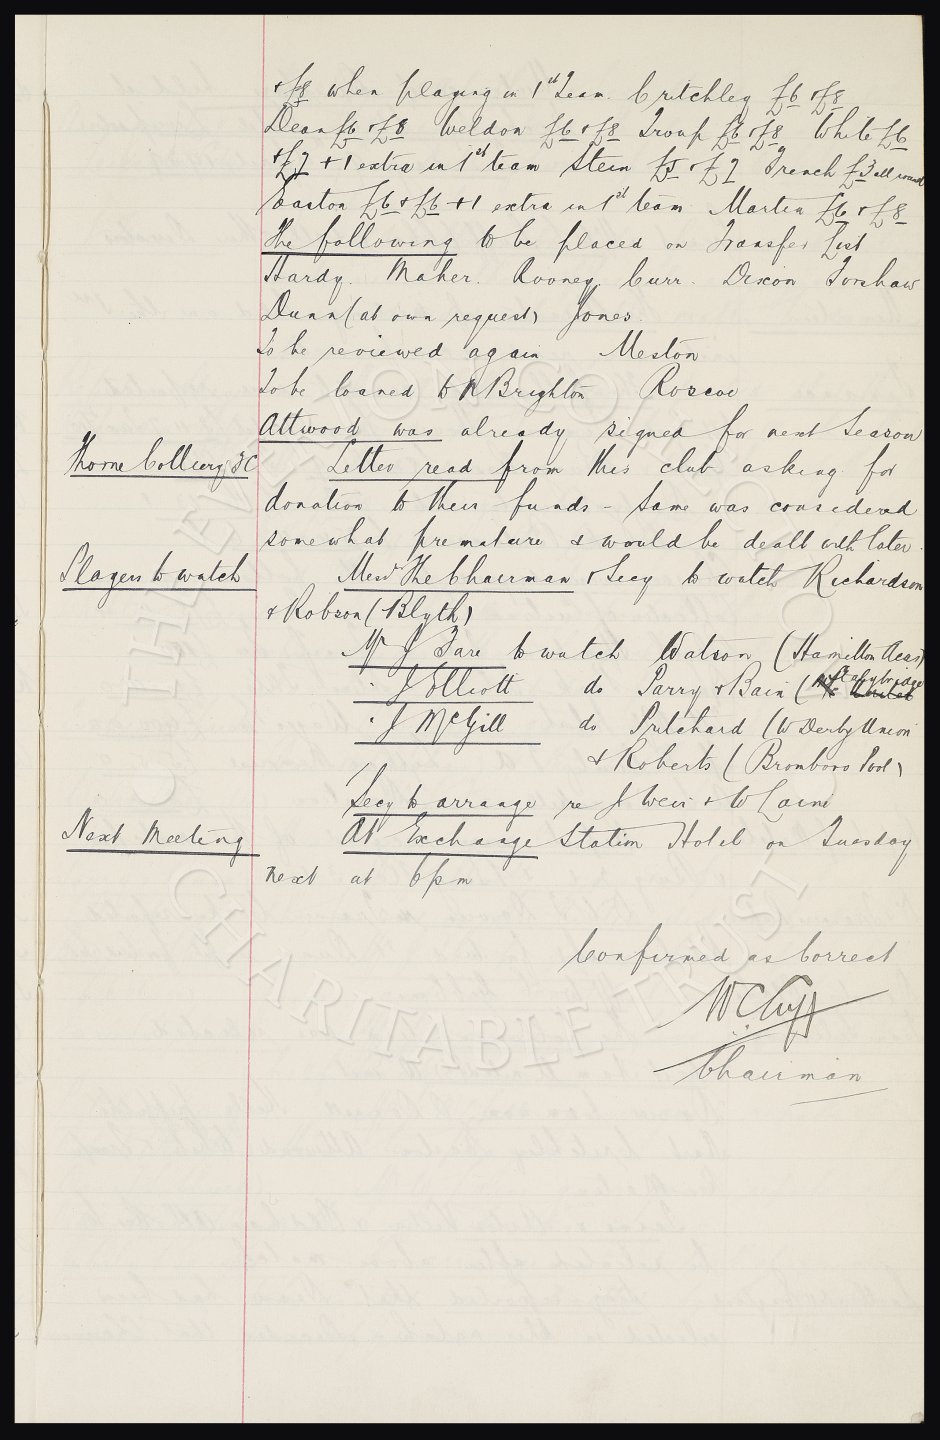 + £8 when playing in 1st Team. Critchley £6 + £8
Dean £6 + £8 Weldon £6 + £8 Troup £6 + £8 White £6
+ £7 + 1 extra in 1st team Stein £5 + £7 French £3 all round
Easton £6 + £6 + 1 extra in 1st team Martin £6 + £8
The following to be placed on Transfer List
Hardy. Maher. Rooney. Curr. Dixon Forshaw
Dunn (at own request) Jones.
To be reviewed again Meston
To be loaned to N Brighton Roscoe
Attwood was already signed for next Season
Thorne Colliery FC Letter read from this club asking for
donation to their funds - same was considered
somewhat premature & would be dealt with later.
Players to watch Messrs The Chairman & Secy to watch Richardson
& Robson (Blyth)
Mr J Fare to watch Watson (Hamilton Acas)
" J Elliott do Parry & Bain (Stalybridge
" J McGill do Pritchard (W Derby Union
& Roberts (Bromboro Pool)
Secy to arrange re J Weir & W Laird
Next Meeting At Exchange Station Hotel on Tuesday
next at 6pm
Confirmed as Correct
WC Cuff
Chairman
THE EVERTON COLLECTION CHARITABLE TRUST